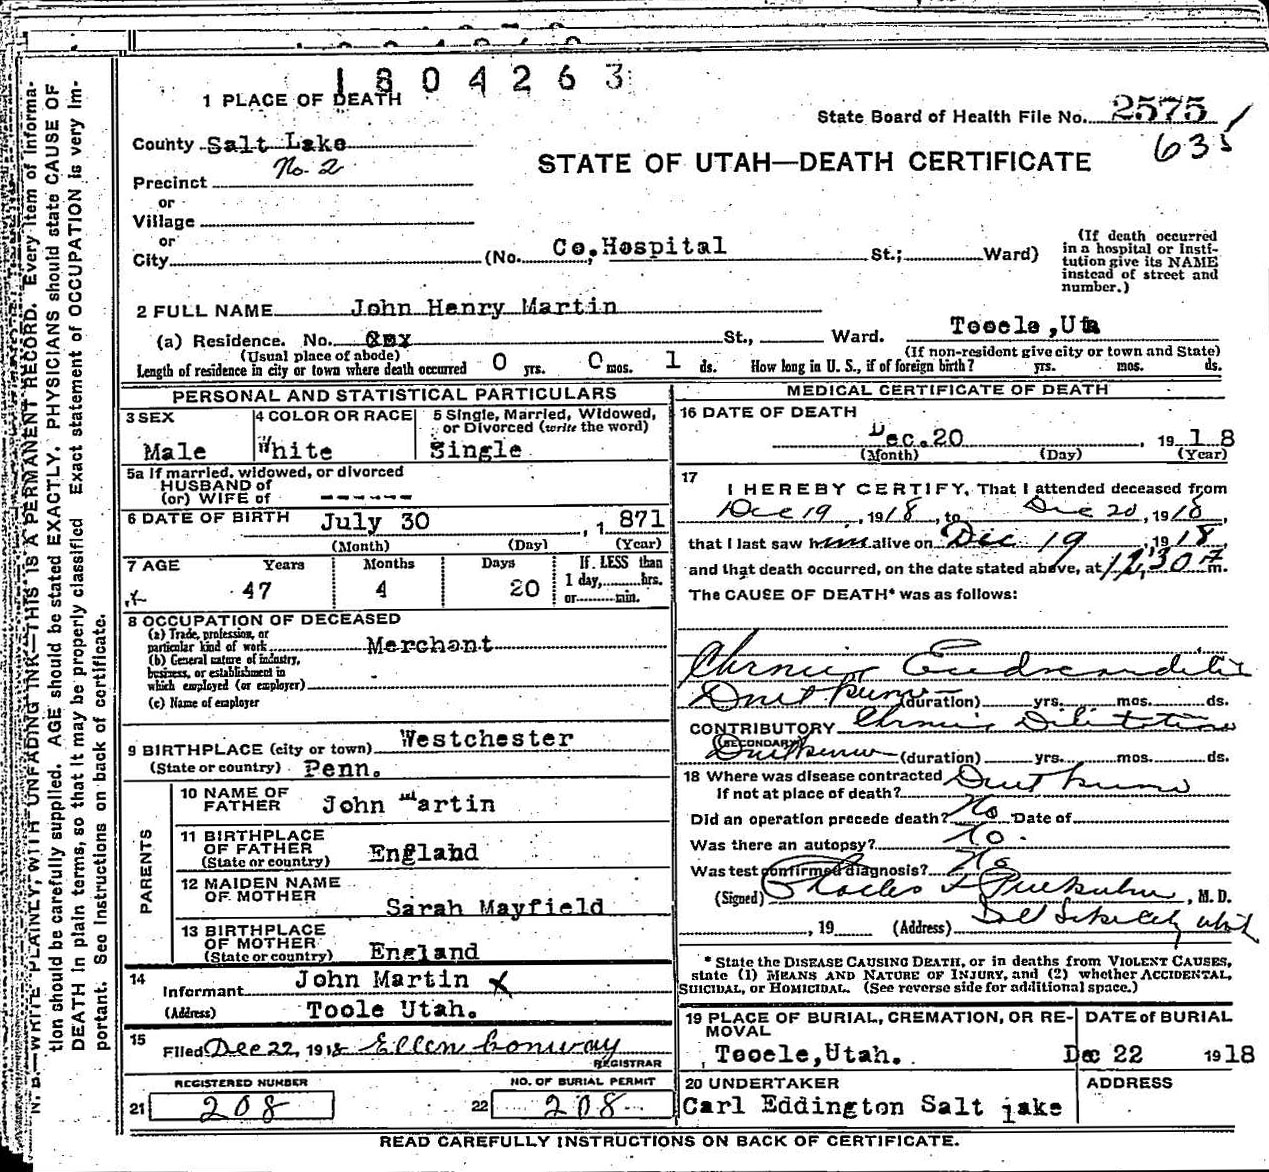 1804263
1 PLACE OF DEATH
State Board of Health File No. 2575
635
County Salt Lake
STATE OF UTAH—DEATH CERTIFICATE
No. 2
Precinct
or
Village
or
City (No. Co. Hospital St.; Ward)
(If death occurred
in a hospital or insti-
tution give its NAME
instead of street and
number.)
2 FULL NAME John Henry Martin
(a) Residence. No. St., Ward. Tooele,Uta
(Usual place of abode) (If non-resident give city or town and State)
Length of residence in city or town where death occurred 0 yrs. 0 mos. 1 ds. How long in U. S., if of foreign birth? yrs. mos. ds.
PERSONAL AND STATISTICAL PARTICULARS
3 SEX 4 COLOR OR RACE 5 Single, Married, Widowed,
or Divorced (write the word)
Male White Single
5a If married, widowed, or divorced
HUSBAND of
(or) WIFE of ------
6 DATE OF BIRTH July 30 , 1 871
(Month) (Day) (Year)
7 AGE Years Months Days If LESS than
1 day, hrs.
47 4 20 or min.
8 OCCUPATION OF DECEASED
(a) Trade, profession, or
particular kind of work Merchant
(b) General nature of industry,
business, or establishment in
which employed (or employer)
(c) Name of employer
9 BIRTHPLACE (city or town) Westchester
(State or country) Penn.
PARENTS
10 NAME OF
FATHER John Martin
11 BIRTHPLACE
OF FATHER
(State or country) England
12 MAIDEN NAME
OF MOTHER Sarah Mayfield
13 BIRTHPLACE
OF MOTHER
(State or country) England
14 Informant John Martin x
(Address) Toole Utah.
15 Filed Dec 22, 1918 Ellen Conway
REGISTRAR
REGISTERED NUMBER NO. OF BURIAL PERMIT
21 208 22 208
MEDICAL CERTIFICATE OF DEATH
16 DATE OF DEATH
Dec.20 , 19 18
(Month) (Day) (Year)
17
I HEREBY CERTIFY, That I attended deceased from
Dec 19, 1918, to Dec 20, 1918,
that I last saw him alive on Dec 19, 1918,
and that death occurred, on the date stated above, at m.
The CAUSE OF DEATH* was as follows:
Chronic Endocarditis
Duration unknown (duration) yrs. mos. ds.
CONTRIBUTORY Chronic
(SECONDARY)
(duration) yrs. mos. ds.
18 Where was disease contracted
If not at place of death?
Did an operation precede death? No Date of
Was there an autopsy? No.
Was test confirmed diagnosis? No
(Signed) Charles , M. D.
, 19 (Address) Salt Lake City Utah
* State the DISEASE CAUSING DEATH, or in deaths from VIOLENT CAUSES,
state (1) MEANS AND NATURE OF INJURY, and (2) whether ACCIDENTAL,
SUICIDAL, or HOMICIDAL. (See reverse side for additional space.)
19 PLACE OF BURIAL, CREMATION, OR RE-
MOVAL
DATE of BURIAL
Tooele,Utah. Dec 22 1918
20 UNDERTAKER ADDRESS
Carl Eddington Salt lake
READ CAREFULLY INSTRUCTIONS ON BACK OF CERTIFICATE.
N. B.—WRITE PLAINLY, WITH UNFADING INK—THIS IS A PERMANENT RECORD. Every item of informa-
tion should be carefully supplied. AGE should be stated EXACTLY. PHYSICIANS should state CAUSE OF
DEATH in plain terms, so that it may be properly classified. Exact statement of OCCUPATION is very im-
portant. See instructions on back of certificate.